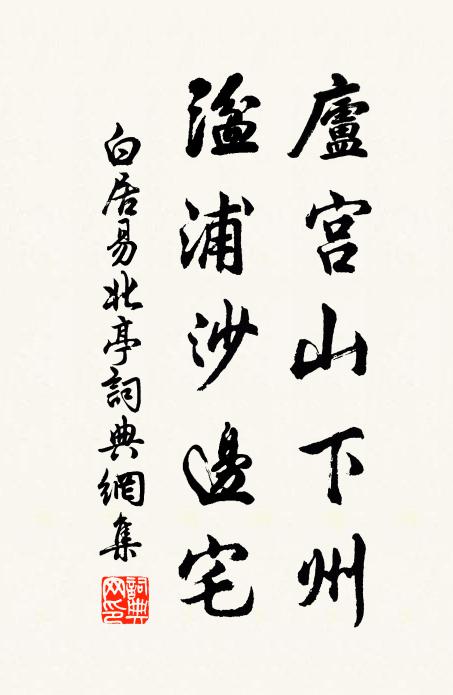 廬宫山下州
湓浦沙邊宅
白居易北亭詞典網集
詞典网印